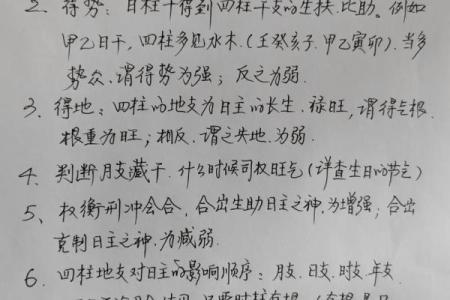 2、得势：日柱干得到四柱干支的生扶.比助。例如
甲乙日干，四柱多见水木.（壬癸亥子.甲乙寅卯）.当多
势众、谓得势为强；反之为弱.
3、得地：四柱的地支为日主的长生.禄旺，谓得气根.
根重为旺；相反.谓之失地.为弱.
4、判断月支藏干.什么时候司权旺气（详查生日的节气）
5、权衡刑冲会合，合出生助日主之神.为增强；合出
克制日主之神.为减弱.
6、四柱地支对日主的影响顺序：月支.日支.时支.年支